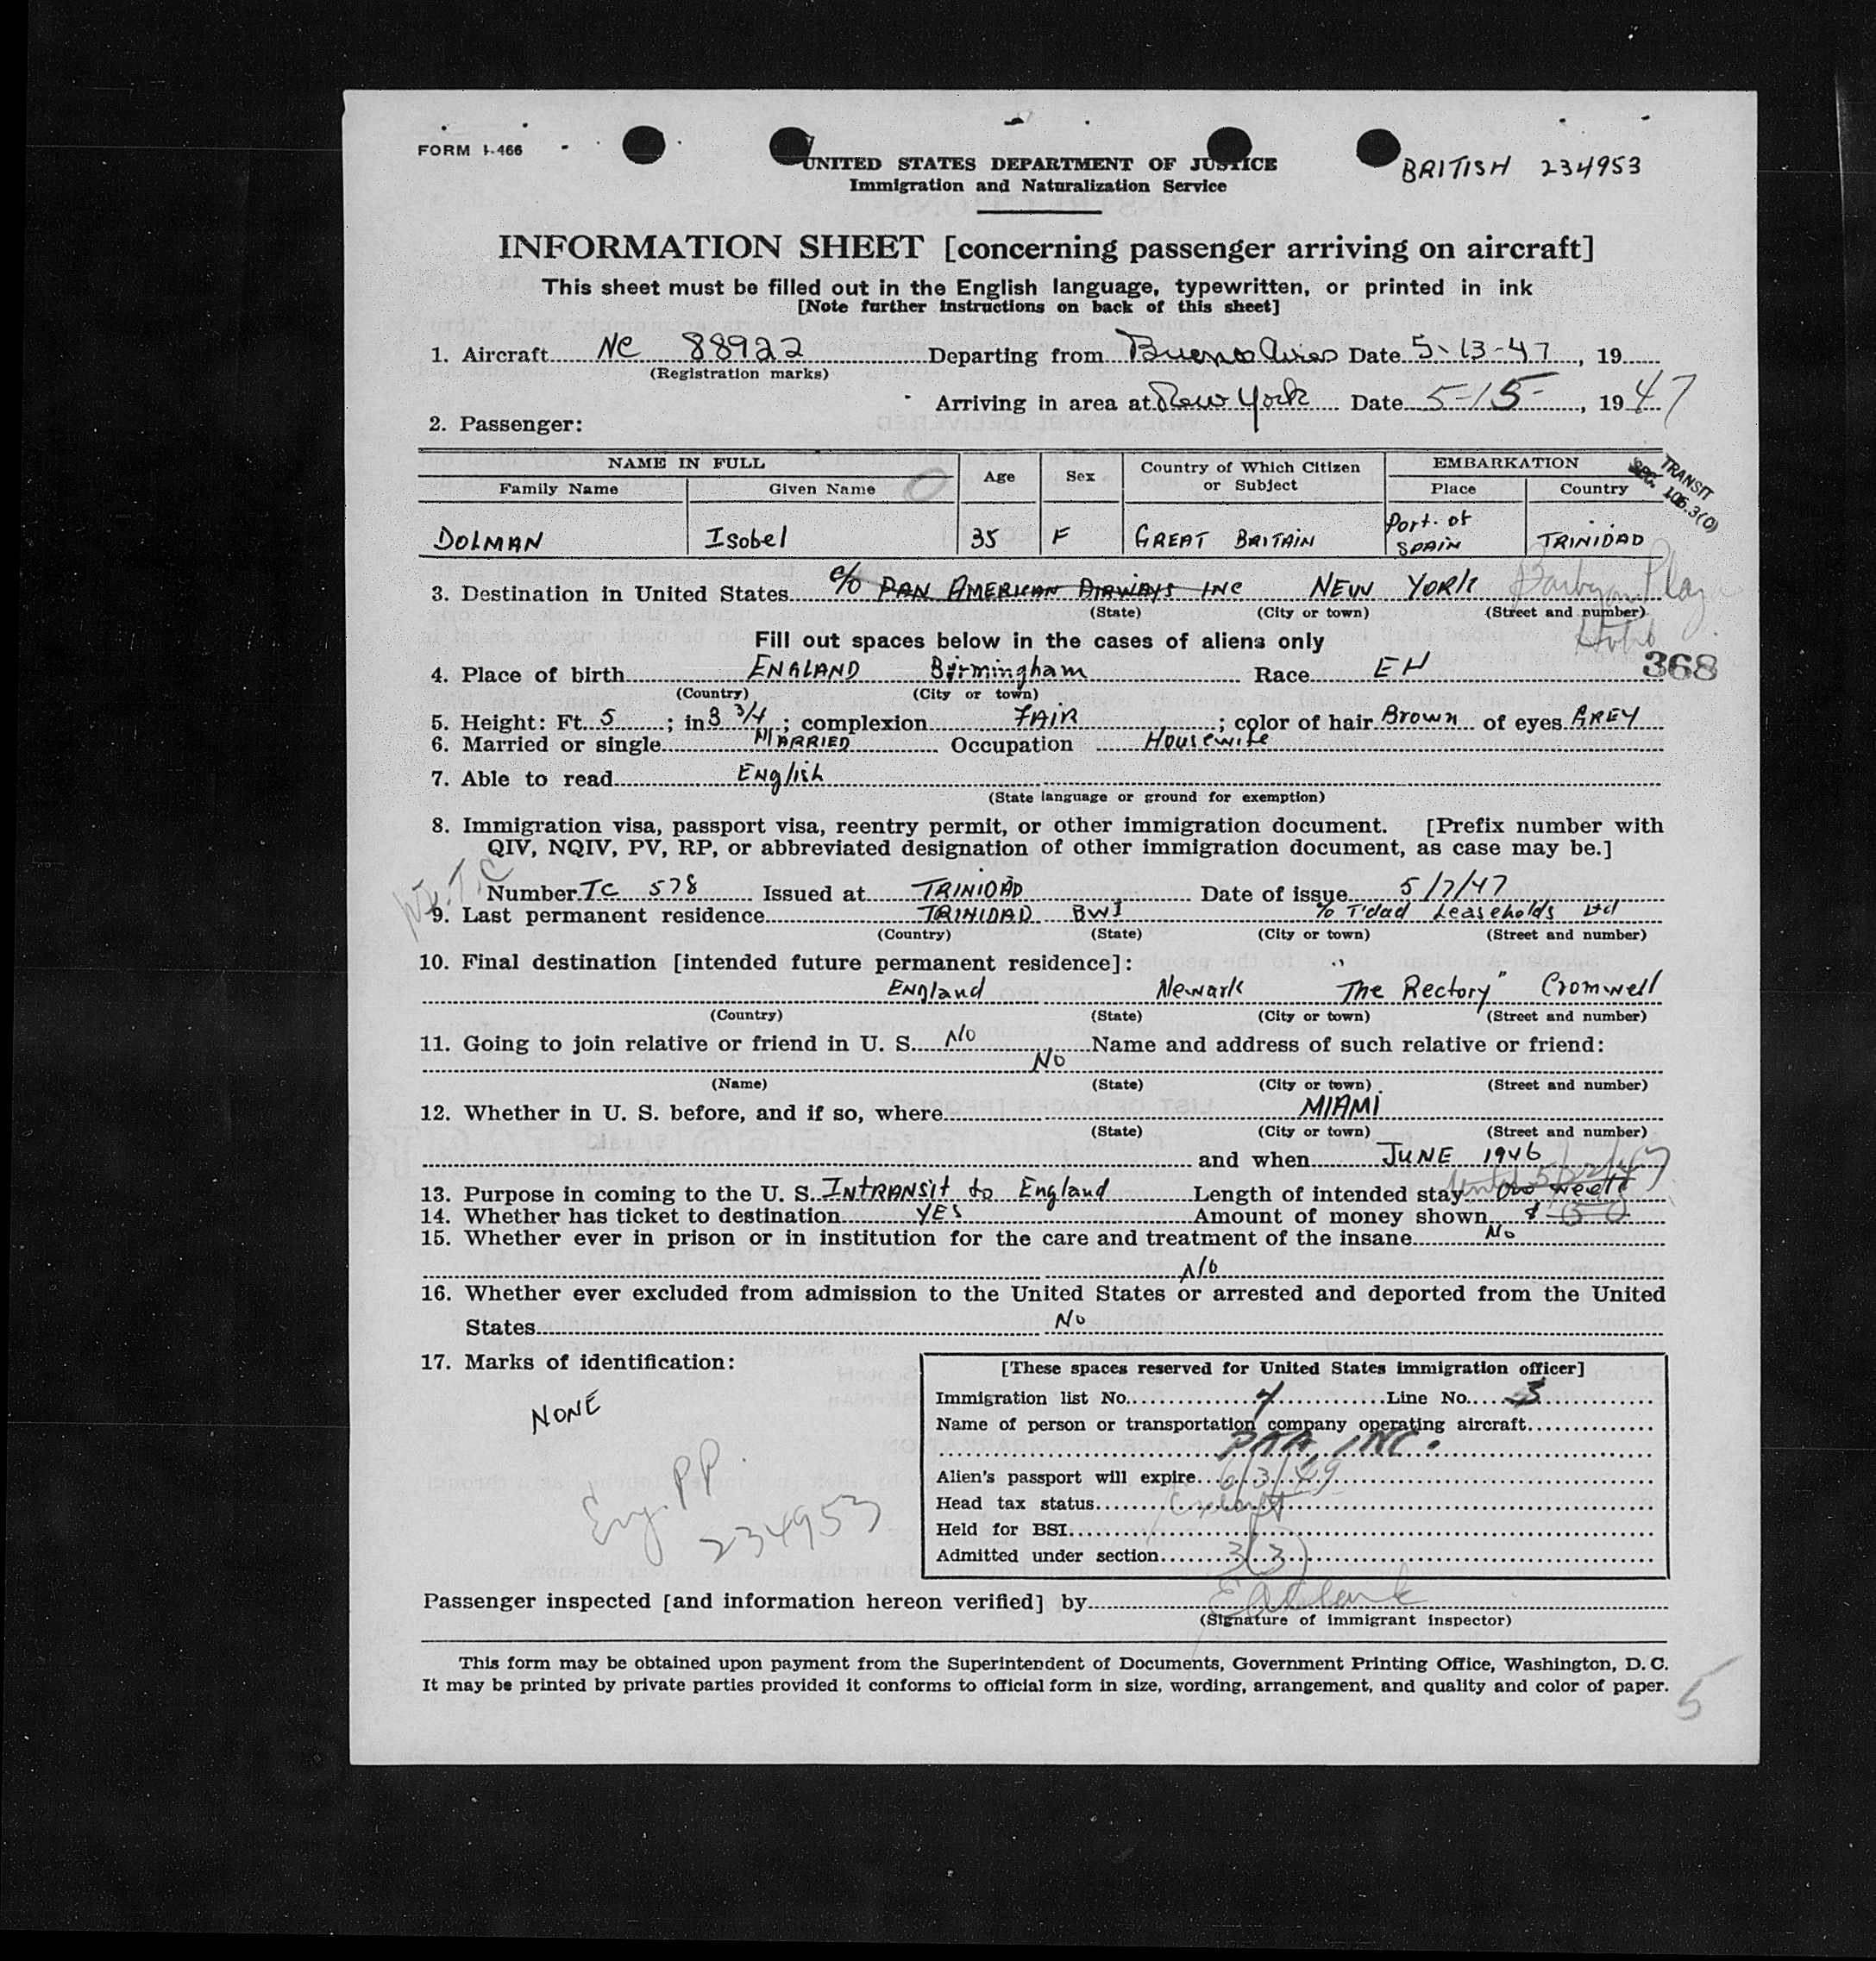 FORM I-466
UNITED STATES DEPARTMENT OF JUSTICE
Immigration and Naturalization Service
BRITISH 234953
INFORMATION SHEET [concerning passenger arriving on aircraft]
This sheet must be filled out in the English language, typewritten, or printed in ink
[Note further instructions on back of this sheet]
1. Aircraft NC 88922 Departing from Buenos Aires Date 5-13-47, 19
(Registration marks)
Arriving in area at New York Date 5-15-, 1947
2. Passenger:
NAME IN FULL Age Sex Country of Which Citizen or Subject EMBARKATION
Family Name Given Name Place Country
TRANSIT
SEC. 106.3(0)
DOLMAN Isobel 35 F GREAT BRITAIN Port. of SPAIN TRINIDAD
3. Destination in United States c/o PAN AMERICAN AIRWAYS INC NEW YORK Plaza
(State) (City or town) (Street and number)
Hotel
Fill out spaces below in the cases of aliens only
368
4. Place of birth ENGLAND Birmingham Race EH
(Country) (City or town)
5. Height: Ft. 5; in 3 3/4; complexion FAIR; color of hair Brown of eyes GREY
6. Married or single MARRIED Occupation Housewife
7. Able to read English
(State language or ground for exemption)
8. Immigration visa, passport visa, reentry permit, or other immigration document. [Prefix number with
QIV, NQIV, PV, RP, or abbreviated designation of other immigration document, as case may be.]
Number TC 578 Issued at TRINIDAD Date of issue 5/7/47
9. Last permanent residence TRINIDAD BWI c/o T'dad Leaseholds Ltd
(Country) (State) (City or town) (Street and number)
10. Final destination [intended future permanent residence]:
England Newark "The Rectory" Cromwell
(Country) (State) (City or town) (Street and number)
11. Going to join relative or friend in U. S. No Name and address of such relative or friend:
No
(Name) (State) (City or town) (Street and number)
12. Whether in U. S. before, and if so, where MIAMI
(State) (City or town) (Street and number)
and when JUNE 1946
13. Purpose in coming to the U. S. INTRANSit to England Length of intended stay One week until 5/22/47
14. Whether has ticket to destination YES Amount of money shown $
15. Whether ever in prison or in institution for the care and treatment of the insane No
No
16. Whether ever excluded from admission to the United States or arrested and deported from the United
States No
17. Marks of identification:
NONE
Eng. PP.
234953
[These spaces reserved for United States immigration officer]
Immigration list No. 4 Line No. 3
Name of person or transportation company operating aircraft
PAA INC.
Alien's passport will expire 6/3/49
Head tax status Exempt
Held for BSI
Admitted under section 3(3)
Passenger inspected [and information hereon verified] by
(Signature of immigrant inspector)
This form may be obtained upon payment from the Superintendent of Documents, Government Printing Office, Washington, D. C.
It may be printed by private parties provided it conforms to official form in size, wording, arrangement, and quality and color of paper.
5